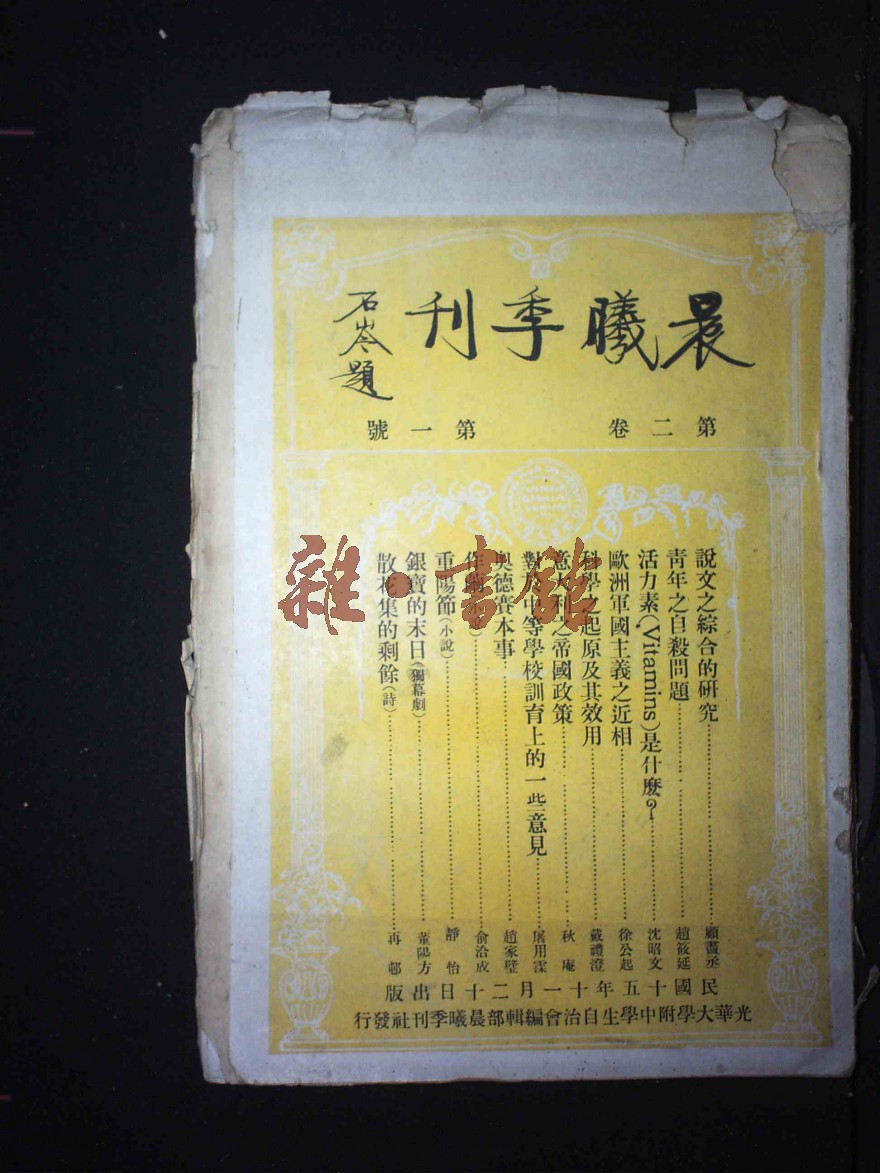 晨曦季刊
石岑題
第二卷 第一號
說文之綜合的研究 顧藎丞
青年之自殺問題 趙筱延
活力素(Vitamins)是什麼? 沈昭文
歐洲軍國主義之近相 徐公起
科學之起原及其效用 戴禮澄
意大利之帝國政策 秋庵
對於中等學校訓育上的一些意見 屠用霖
奧德賽本事 趙家璧
作 俞洽成
重陽節(小說) 靜怡
銀寶的末日(獨幕劇) 董陽方
散花集的剩餘(詩) 再邨
民國十五年十一月二十日出版
光華大學附中學生自治會編輯部晨曦季刊社發行
雜·書館